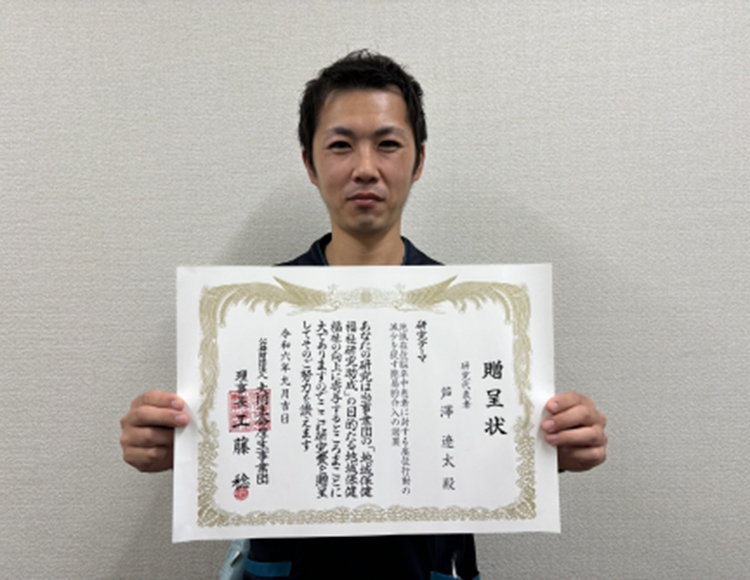 贈呈状
研究代表者
芦澤 遼太 殿
研究テーマ
地域在住脳卒中患者に対する座位行動の
減少を促す簡易的介入の効果
あなたの研究は当事業団の「地域保健
福祉研究助成」の目的たる地域保健
福祉の向上に寄与するところまことに
大でありますのでここに研究費を贈呈
してそのご努力を讃えます
令和六年九月吉日
公益財団法人 大同生命厚生事業団
理事長 工藤 稔